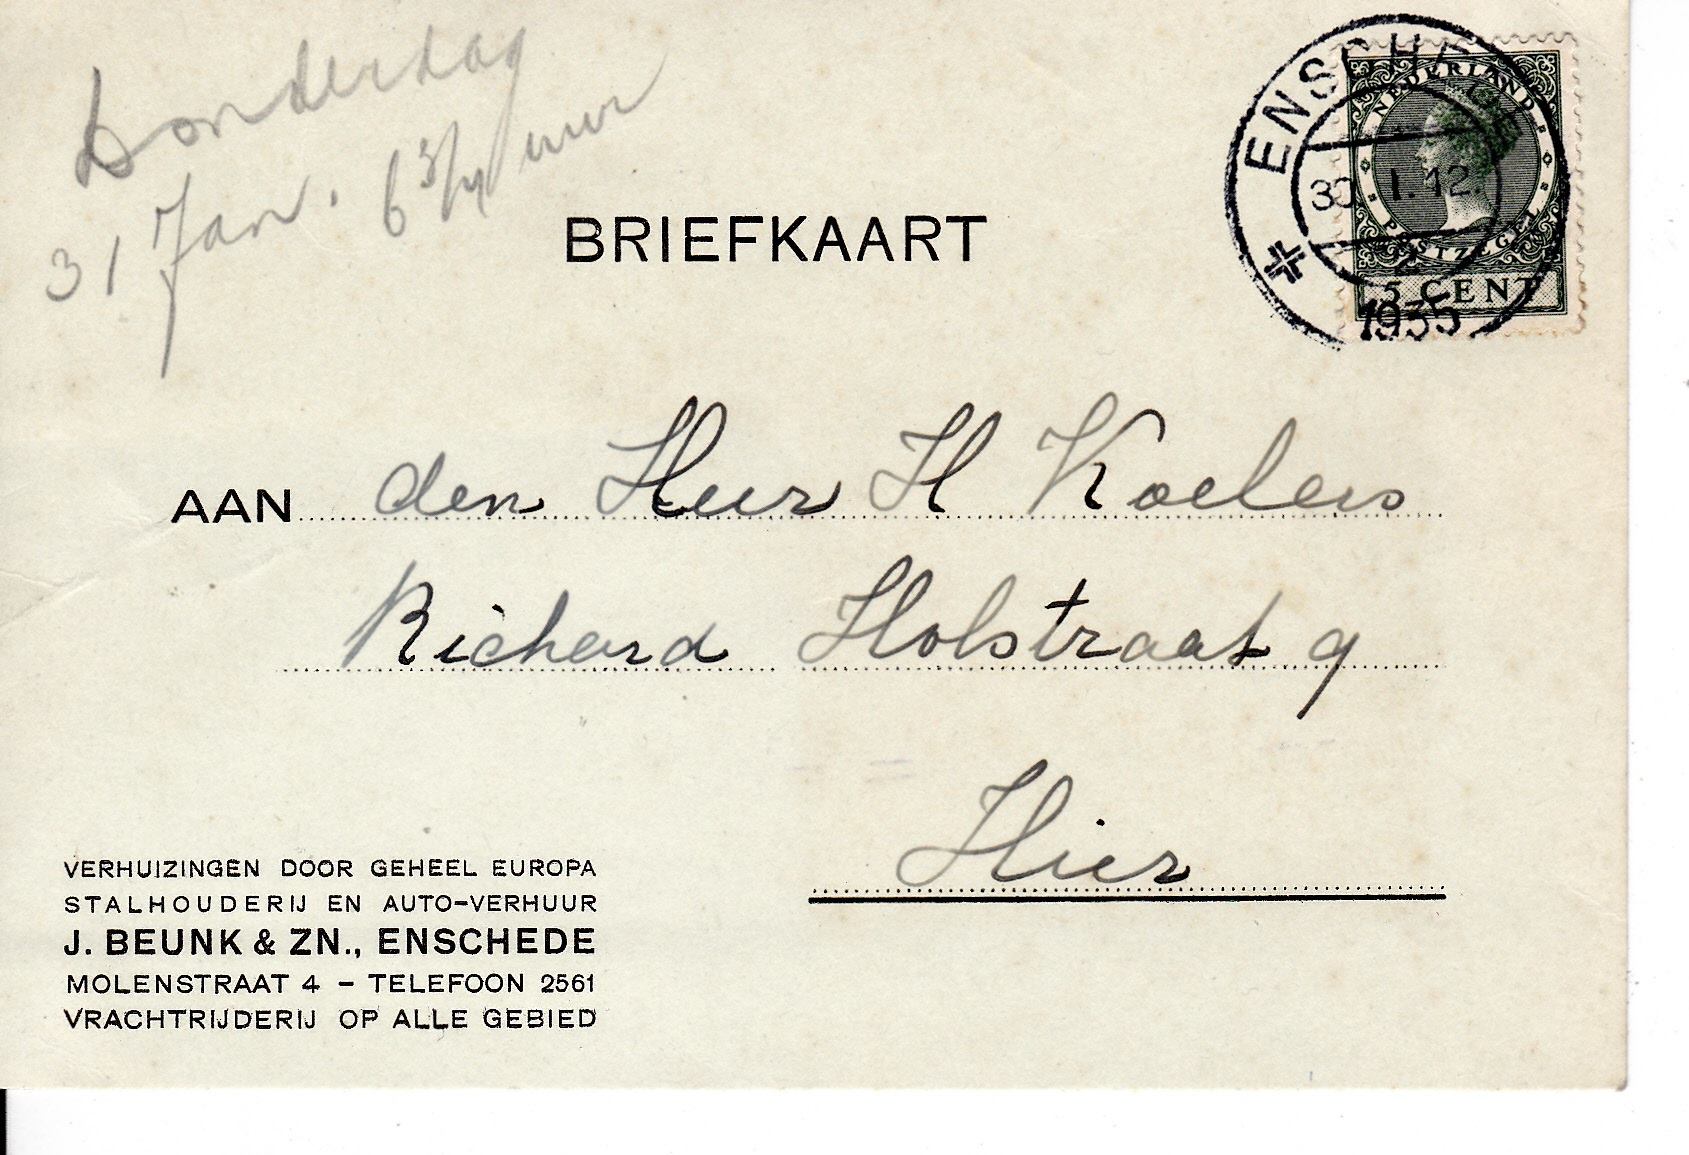 Donderdag
31 Jan. 6 3/4 uur
BRIEFKAART
ENSCHEDE
30 1.12
2
1935
NEDERLAND
POSTZEGEL
5 CENT
AAN den Heer H Koelers
Richard Holstraat 9
Hier
VERHUIZINGEN DOOR GEHEEL EUROPA
STALHOUDERIJ EN AUTO-VERHUUR
J. BEUNK & ZN., ENSCHEDE
MOLENSTRAAT 4 – TELEFOON 2561
VRACHTRIJDERIJ OP ALLE GEBIED